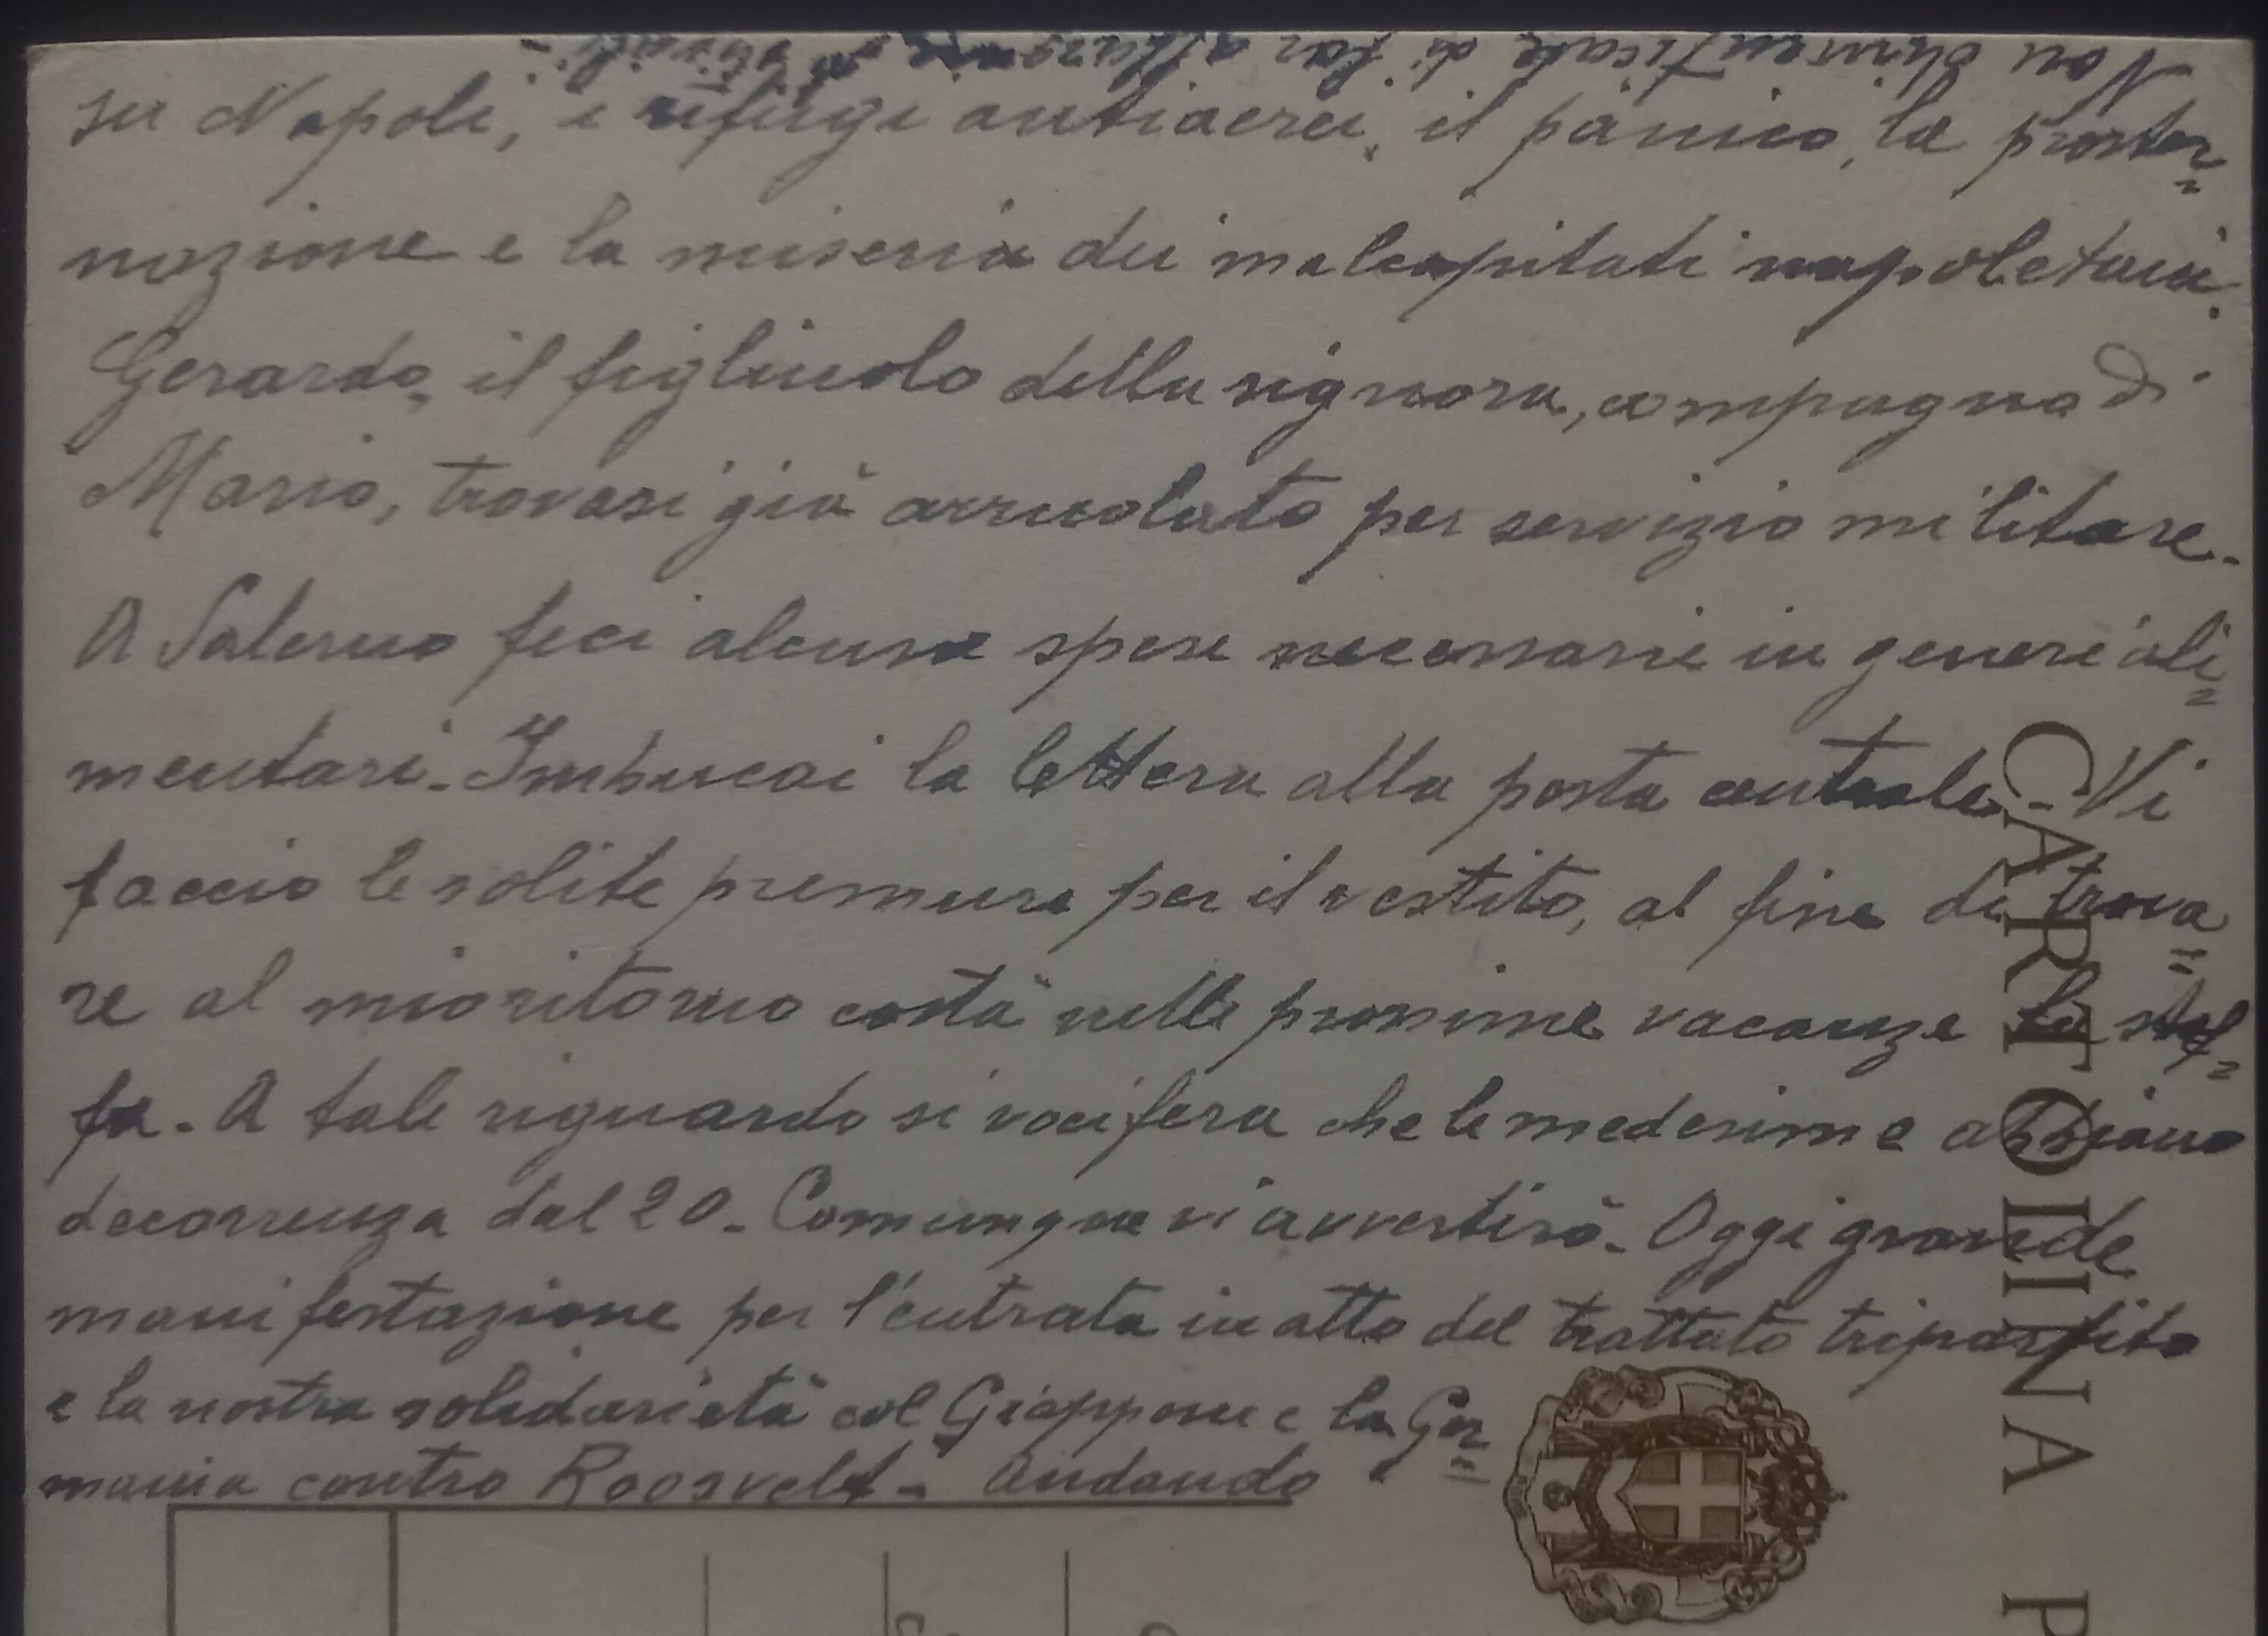 Non dimenticate di far
su Napoli, i rifugi antiaerei, il pànico, la proster=
nazione e la miseria dei malcapitati napoletani.
Gerardo, il figliuolo della signora, compagno di
Mario, trovasi già arruolato per servizio militare.
A Salerno feci alcune spese necessarie in generi ali=
mentari. Imbucai la lettera alla posta centrale. Vi
faccio le solite premure per il vestito, al fine di trova=
re al mio ritorno costà nelle prossime vacanze la stof=
fa. A tale riguardo si vocifera che le medesime abbiano
decorrenza dal 20. Comunque vi avvertirò. Oggi grande
manifestazione per l'entrata in atto del trattato tripartito
e la nostra solidarietà col Giappone e la Ger=
mania contro Roosvelt. Andando
CARTOLINA P